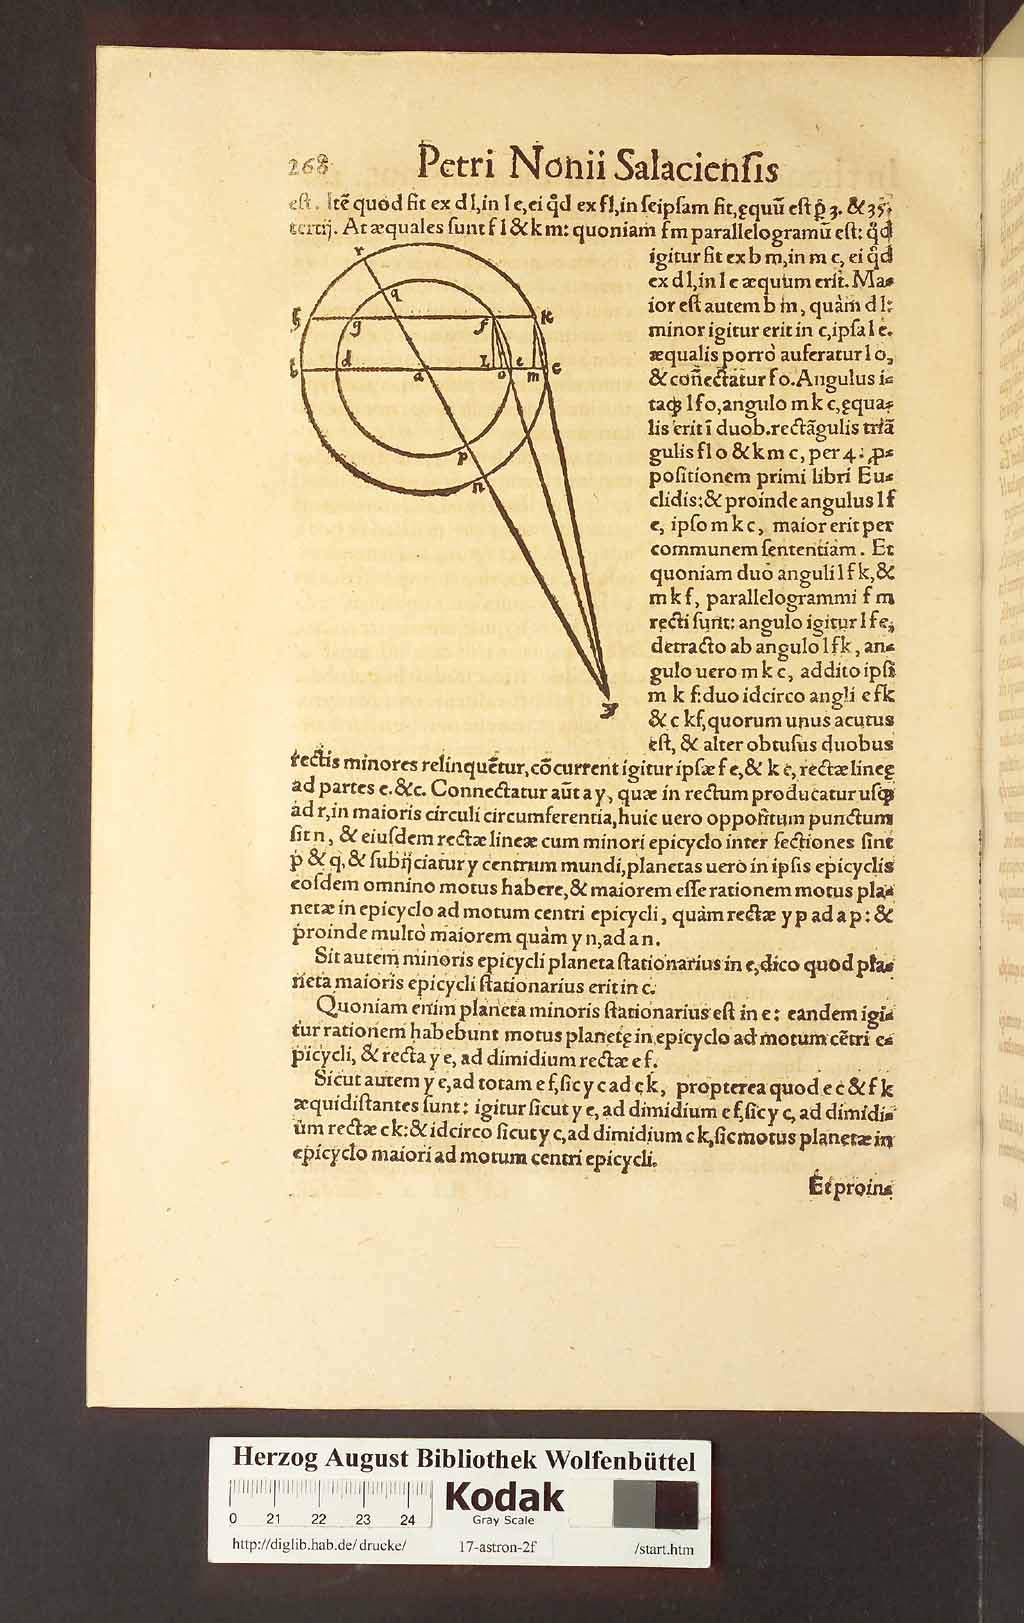 268 Petri Nonii Salaciensis
est. Itē quod fit ex d l, in l e, ei q̃d ex f l, in seipsam fit, ęquũ est p̱ 3. & 35.
tertij. At æquales sunt f l & k m: quoniam f m parallelogramũ est: q̃d
igitur fit ex b m, in m c, ei q̃d
ex d l, in l e æquum erit. Ma⸗
ior est autem b m, quàm d l:
minor igitur erit m c, ipsa l e.
æqualis porrò auferatur l o,
& coñectatur f o. Angulus i⸗
taq; l f o, angulo m k c, ęqua⸗
lis erit ĩ duob. rectãgulis triã
gulis f l o & k m c, per 4. ꝓ⸗
positionem primi libri Eu⸗
clidis: & proinde angulus l f
e, ipso m k c, maior erit per
communem sententiam. Et
quoniam duo anguli l f k, &
m k f, parallelogrammi f m
recti sunt: angulo igitur l f e,
detracto ab angulo l f k, an⸗
gulo uero m k c, addito ipsi
m k f: duo idcirco angli e f k
& c k f, quorum unus acutus
est, & alter obtusus duobus
rectis minores relinquẽtur, cõcurrent igitur ipsæ f e, & k c, rectæ lineę
ad partes e. & c. Connectatur aũt a y, quæ in rectum producatur usq;
ad r, in maioris circuli circumferentia, huic uero oppositum punctum
sit n, & eiusdem rectæ lineæ cum minori epicyclo inter sectiones sint
p & q, & subijciatur y centrum mundi, planetas uerò in ipsis epicyclis
eosdem omnino motus habere, & maiorem esse rationem motus pla⸗
netæ in epicyclo ad motum centri epicycli, quàm rectæ y p ad a p: &
proinde multò maiorem quàm y n, ad a n.
Sit autem minoris epicycli planeta stationarius in e, dico quod pla⸗
neta maioris epicycli stationarius erit in c.
Quoniam enim planeta minoris stationarius est in e: eandem igi⸗
tur rationem habebunt motus planetę in epicyclo ad motum cẽtri e⸗
picycli, & recta y e, ad dimidium rectæ e f.
Sicut autem y e, ad totam e f, sic y c ad c k, propterea quod e c & f k
æquidistantes sunt: igitur sicut y e, ad dimidium e f, sic y c, ad dimidi⸗
um rectæ c k: & idcirco sicut y c, ad dimidium c k, sic motus planetæ in
epicyclo maiori ad motum centri epicycli.
Et proin⸗
r
q
g f k
b d a L o e m c
p
n
y
Herzog August Bibliothek Wolfenbüttel
0 21 22 23 24
Kodak
Gray Scale
http://diglib.hab.de/drucke/ 17-astron-2f /start.htm